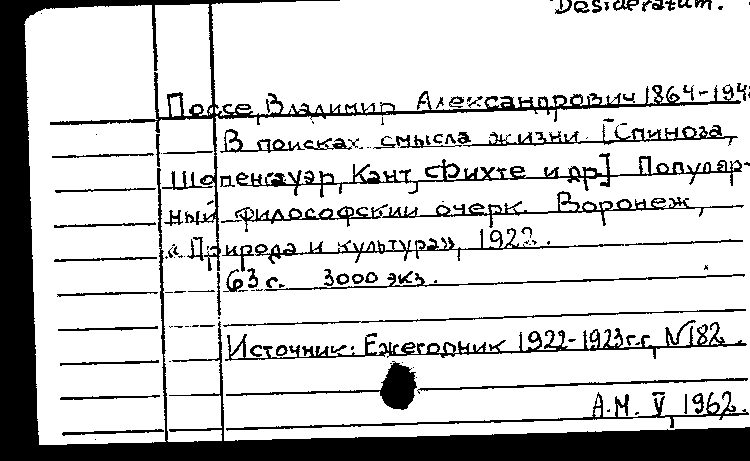 Desideratum.
Поссе, Владимир Александрович 1864-194
В поисках смысла жизни [Спиноза,
Шопенгауэр, Кант, Фихте и др.] Популяр-
ный философский очерк. Воронеж,
«Природа и культура», 1922.
63 с. 3000 экз.
Источник: Ежегодник 1922-1923 г.г, №182.
А.М. V, 1962.